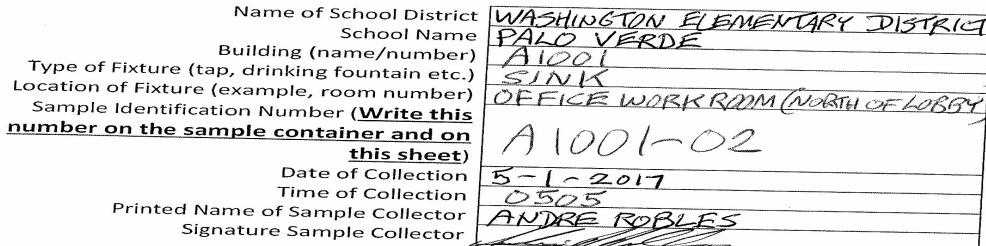 Name of School District WASHINGTON ELEMENTARY DISTRICT
School Name PALO VERDE
Building (name/number) A1001
Type of Fixture (tap, drinking fountain etc.) SINK
Location of Fixture (example, room number) OFFICE WORKROOM (NORTH OF LOBBY
Sample Identification Number (Write this
number on the sample container and on
this sheet) A1001-02
Date of Collection 5-1-2017
Time of Collection 0505
Printed Name of Sample Collector ANDRE ROBLES
Signature Sample Collector